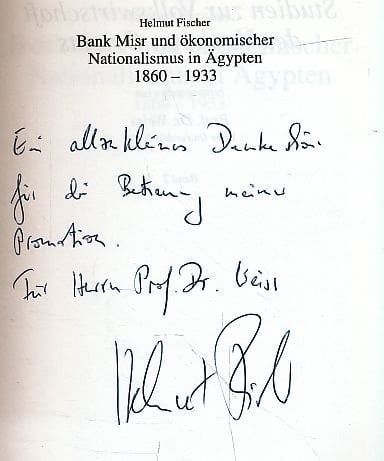 Helmut Fischer
Bank Miṣr und ökonomischer
Nationalismus in Ägypten
1860 – 1933
Ein allzu kleines Dankeschön
für die Betreuung meiner
Promotion.
Für Herrn Prof. Dr. Weiss
Helmut Fischer